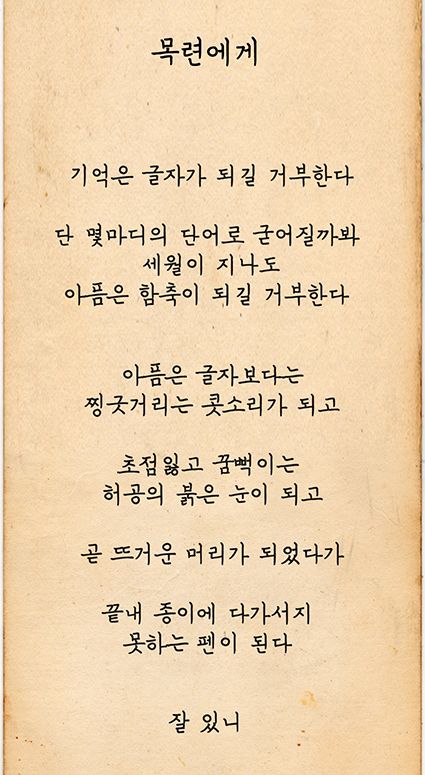 목련에게
기억은 글자가 되길 거부한다
단 몇마디의 단어로 굳어질까봐
세월이 지나도
아픔은 함축이 되길 거부한다
아픔은 글자보다는
찡긋거리는 콧소리가 되고
초점잃고 꿈뻑이는
허공의 붉은 눈이 되고
곧 뜨거운 머리가 되었다가
끝내 종이에 다가서지
못하는 펜이 된다
잘 있니